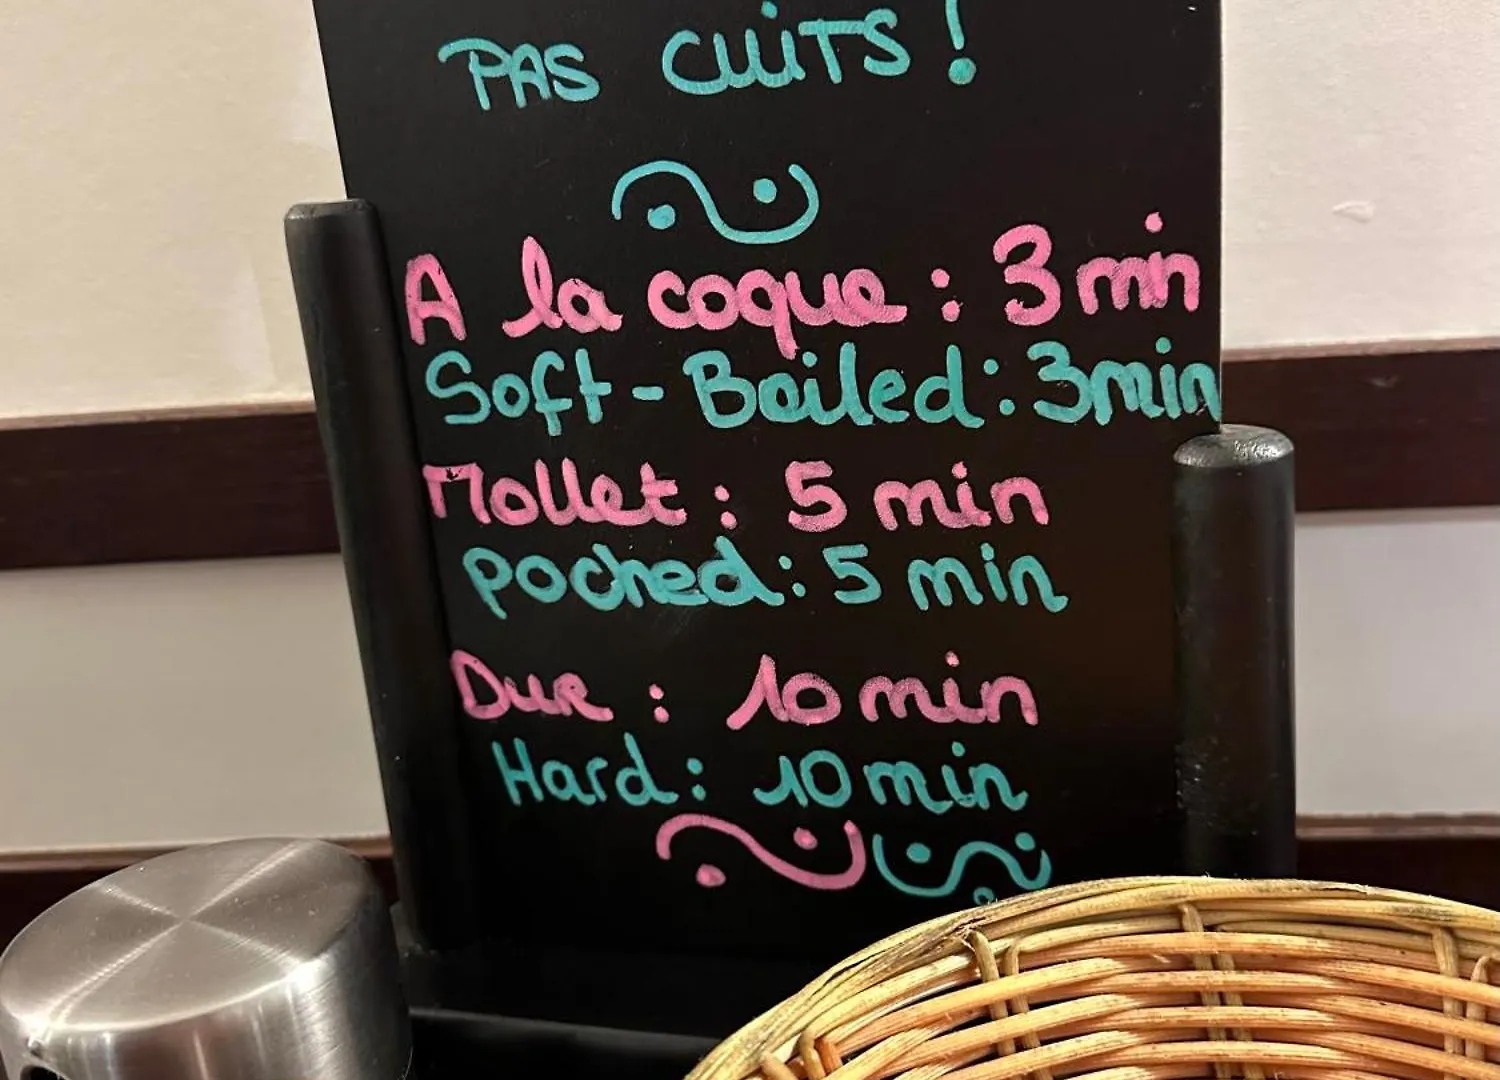 PAS CUITS !
A la coque : 3 min
Soft-Boiled : 3 min
Mollet : 5 min
Poched : 5 min
Dur : 10 min
Hard : 10 min